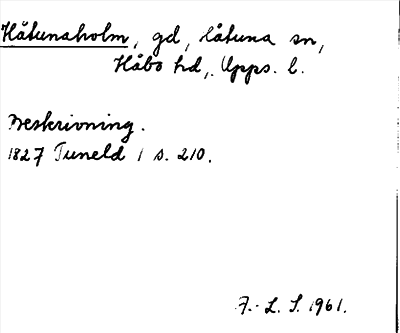 Håtunaholm, gd, Låtuna sn,
Håbo hd, Upps. l.
Beskrivning.
1827 Tuneld 1 s. 210.
F. L. S. 1961.